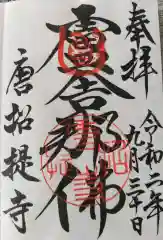 奉拝
令和二年九月三十日
盧舎那佛
唐招提寺